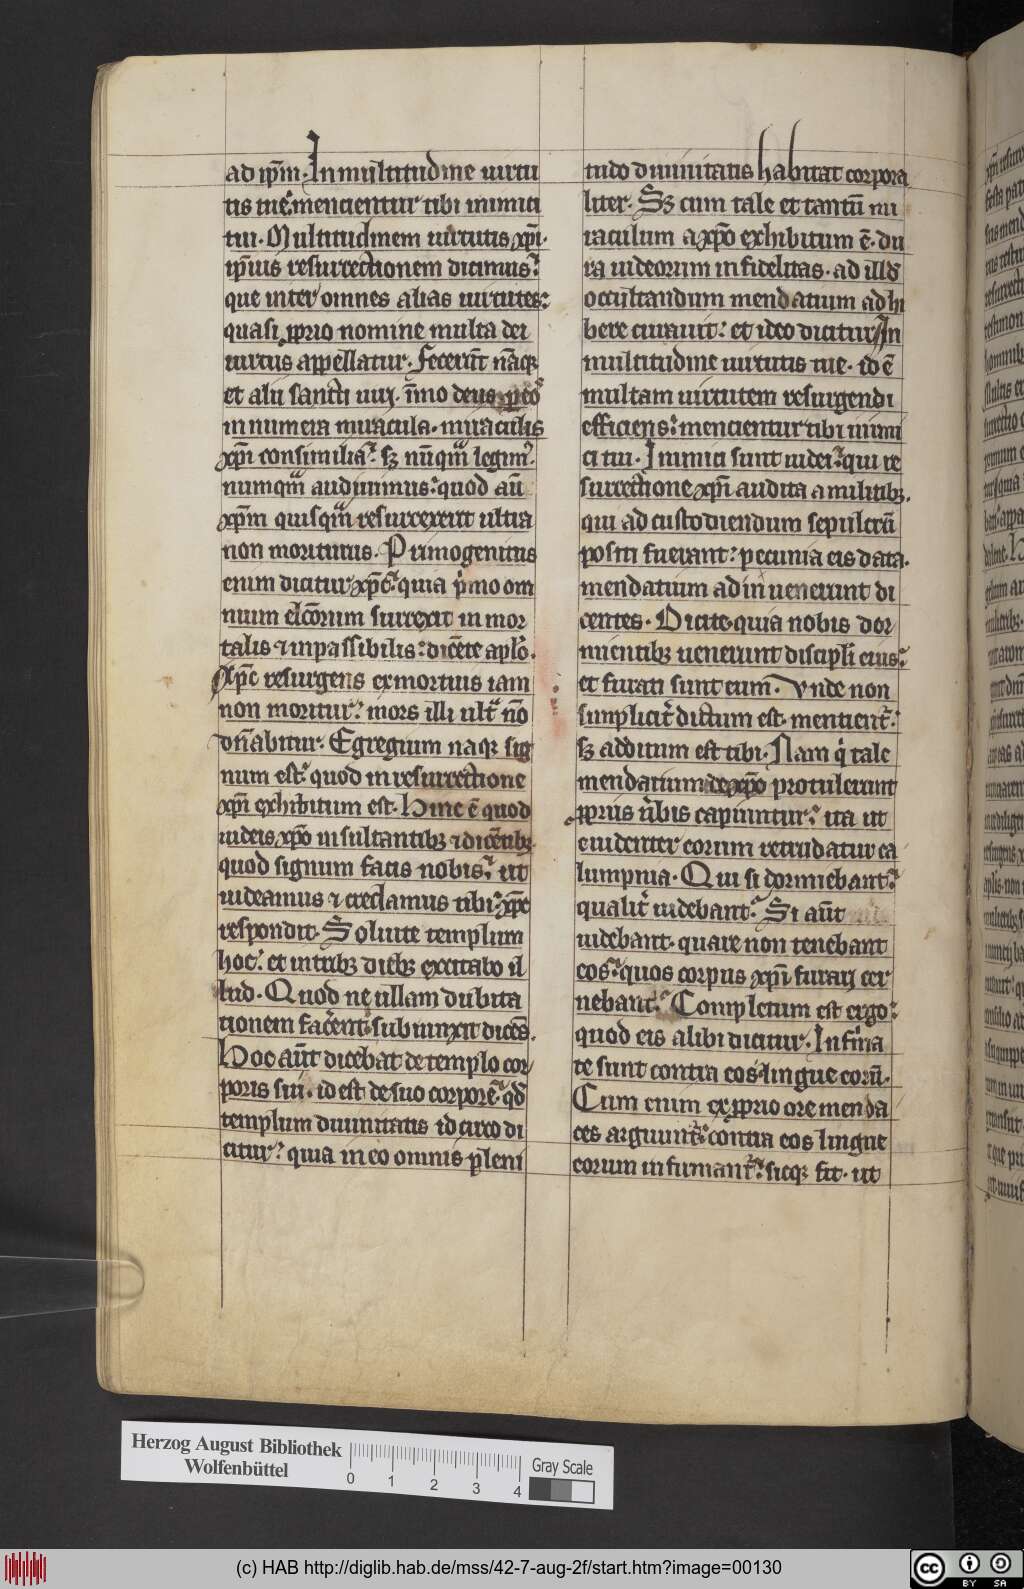 ad ip̄m. In multitudine uirtu
tis tue. mencientur tibi inimici
tui. Multitudinem uirtutis xp̄i.
ip̄ius resurrectionem dicimus.
que inter omnes alias uirtutes:
quasi p̱prio nomine multa dei
uirtus appellatur. Fecerūt nāq
et alii sancti uiri. īmo deus p̱ eos
innumera miracula. miraculis
xp̄i consimilia. sꝫ nūqm̄ legimꝰ.
numqm̄ audiuimus. quod aū
xp̄m quisqm̄ resurrexerit ultra
non moriturus. Primogenitus
enim dicitur xp̄c. quia p̍mo om
nium elc̄orum surrexit in mor
talis ⁊ inpassibilis. dicēte apl̄o.
Xp̄c resurgens ex mortuis iam
non moritur. mors illi ult̄ nō
dn̄abitur. Egregium naqꝫ sig
num est. quod in resurrectione
xp̄i exhibitum est. Hinc ē quod
iudeis xp̄o insultantibꝫ ⁊ dicētibꝫ.
quod signum facis nobis. ut
uideamus ⁊ credamus tibi. xp̄c
respondit. Soluite templum
hoc. et in tribꝫ diebꝫ excitabo il
lud. Quod ne ullam dubita
tionem facērent. subiunxit dicēs.
Hoc aūt dicebat de templo cor
poris sui. id est de suo corpore. qd̄
templum diuinitatis idcirco di
citur. quia in eo omnis pleni
tudo diuinitatis habitat corpora
liter. Sꝫ cum tale et tantū mi
raculum a xp̄o exhibitum ē. du
ra iudeorum infidelitas. ad illd̄
occultandum mendatium adhi
bere curauit. et ideo dicitur In
multitudine uirtutis tue. id ē
multam uirtutem resurgendi
efficiens. mencientur tibi inimi
ci tui. Inimici sunt iudei. qui re
surrectione xp̄i audita a militibꝫ.
qui ad custodiendum sepulcrū
positi fuerant. pecunia eis data.
mendatium adinuenerunt di
centes. Dicite quia nobis dor
mientibꝫ uenerunt discipl̄i eius.
et furati sunt eum. Vnde non
simplicit̄ dictum est. mentient̄.
sꝫ additum est tibi. Nam q̍ tale
mendatium de xp̄o protulerunt
p̱priis ūbis capiuntur. ita ut
euidenter eorum retrudatur ca
lumpnia. Qui si dormiebant.
qualit̄ uidebant. Si aūt
uidebant. quare non tenebant
eos. quos corpus xp̄i furari cer
nebant. Completum est ergo.
quod eis alibi dicitur. Infirma
te sunt contra eos lingue eorū.
Cum enim ex p̱prio ore menda
ces arguunt̄. contra eos lingue
eorum infirmant̄. sicqꝫ fit. ut
Herzog August Bibliothek
Wolfenbüttel
0 1 2 3 4
Gray Scale
(c) HAB http://diglib.hab.de/mss/42-7-aug-2f/start.htm?image=00130
cc BY SA